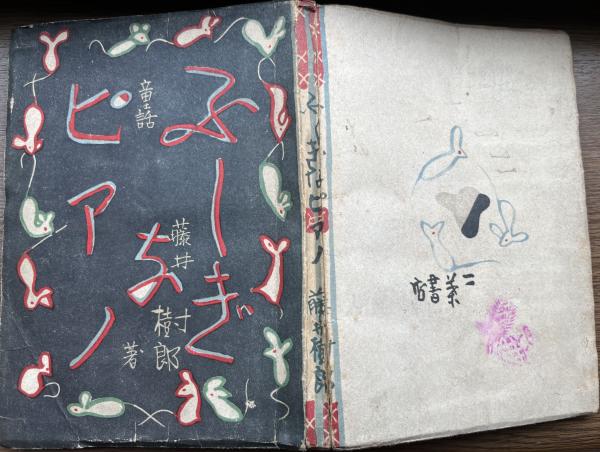 童話
ふしぎな
ピアノ
藤井樹郎著
ふしぎなピアノ 藤井樹郎
二葉書店